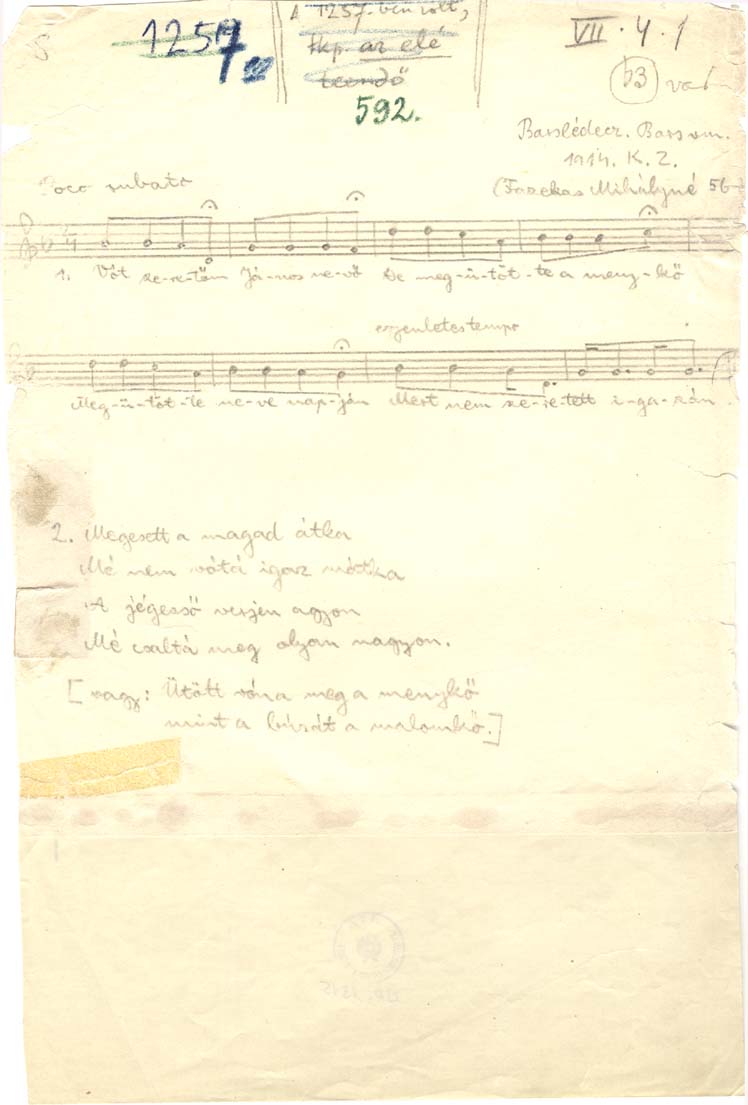 1257
1257-ben volt,
tkp. az elé
teendő
592.
VII. 4. 1
b3 var
Barslédecz. Bars vm.
1914. K. Z.
(Fazekas Mihályné 56
Poco rubato
1. Vót sze-re-tőm Já-nos ne-vő De meg-ü-töt-te a meny-kő
egyenletes tempo
Meg-ü-töt-te ne-ve nap-ján Mert nem sze-re-tett i-ga-zán.
2. Megesett a magad átka
Mé nem vótá igaz mátka
A jégesső verjen agyon
Mé csaltá meg olyan nagyon.
[vagy: Ütött vóna meg a menykő
mint a búzát a malomkő.]